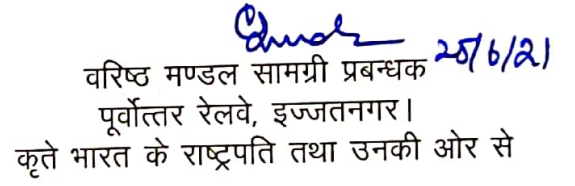 वरिष्ठ मण्डल सामग्री प्रबन्धक 25/6/21
पूर्वोत्तर रेलवे, इज्जतनगर।
कृते भारत के राष्ट्रपति तथा उनकी ओर से